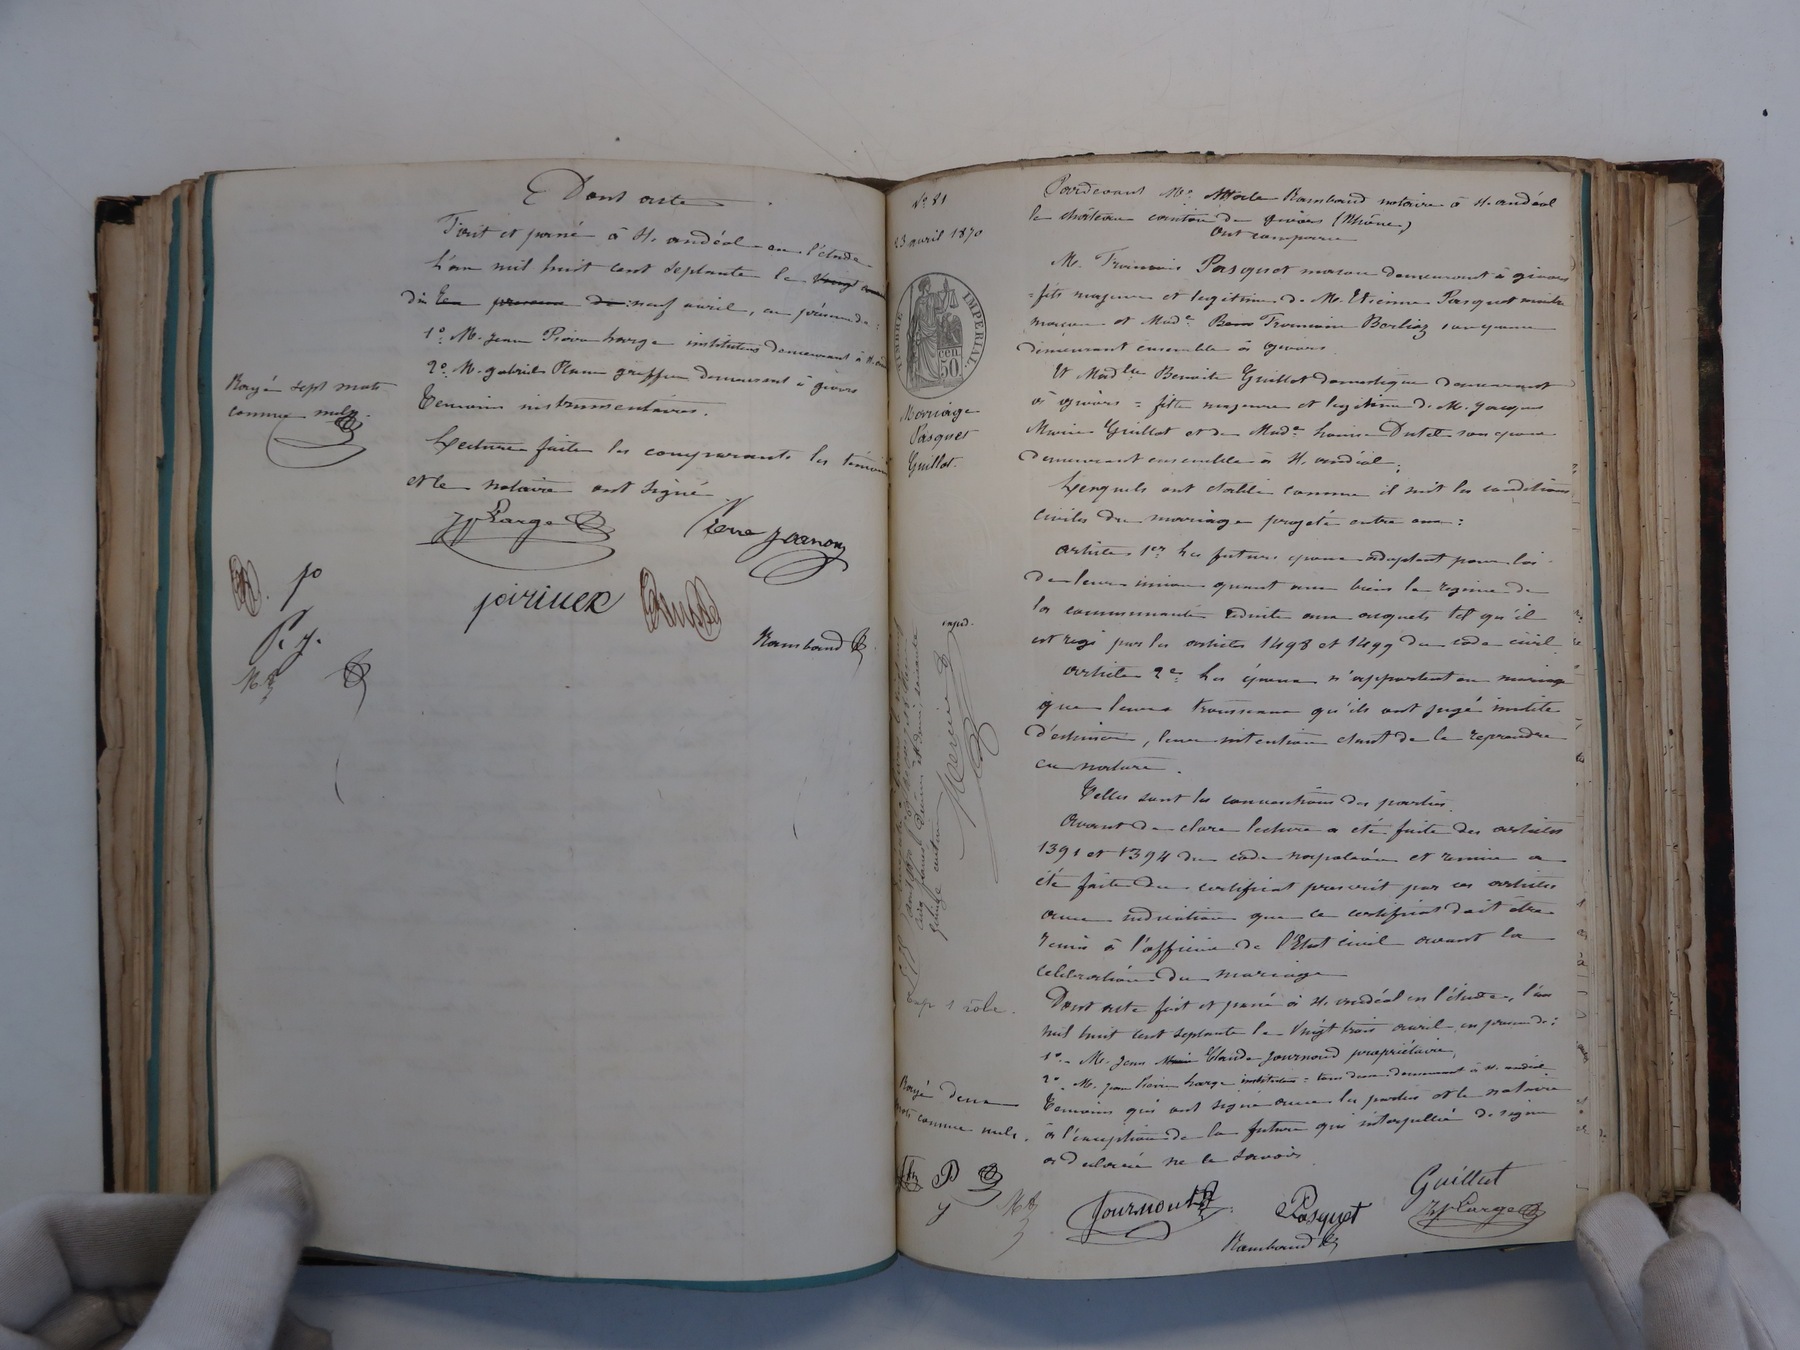 Dont acte
Fait et passé à St. andéol en l'étude
L'an mil huit cent septante le vingt
dix neuf avril, en présence de :
1° M. Jean Pierre Large instituteur demeurant à St. and
2° M. gabriel greffier demeurant à givors
Témoins instrumentaires.
Lecture faite les comparants les témoins
et le notaire ont signé
Rayé sept mots
comme nuls.
JP Large
Pierre
Rambaud
N° 81
23 avril 1870
TIMBRE IMPERIAL
50 cen
Mariage
Pasquet
Guillot.
Exp 1 rôle.
Rayé deux
mots comme nuls.
Pardevant Me Rambaud notaire à St. andéol
le château canton de givors (Rhône)
Ont comparu
M. François Pasquet maçon demeurant à givors
= fils majeur et légitime de M. Etienne Pasquet maître
maçon et Made Françoise Berlioz son épouse
demeurant ensemble à givors
Et Madlle Benoite Guillot domestique demeurant
à givors = fille majeure et légitime de M. Jacques
Marie Guillot et de Made Louise Dutel son épouse
demeurant ensemble à St. andéol.
Lesquels ont établi comme il suit les conditions
civiles du mariage projeté entre eux :
article 1er Les futurs époux adoptent pour loi
de leur union quant aux biens le régime de
la communauté réduite aux acquets tel qu'il
est régi par les articles 1498 et 1499 du code civil
article 2e Les époux n'apportent en mariage
que leurs trousseaux qu'ils ont jugé inutile
d'estimer, leur intention étant de le reprendre
en nature.
Telles sont les conventions des parties.
Avant de clore lecture a été faite des articles
1391 et 1394 du code napoléon et remise a
été faite du certificat prescrit par ces articles
avec indication que ce certificat doit être
remis à l'officier de l'Etat civil avant la
célébration du mariage
Dont acte fait et passé à St. andéol en l'étude, l'an
mil huit cent septante le vingt trois avril en présence de :
1° - M. Jean Claude Journoud propriétaire,
2° - M. Jean Pierre Large instituteur = tous deux demeurant à St. andéol
Témoins qui ont signé avec les parties et le notaire
à l'exception de la future qui interpellée de signer
a déclaré ne le savoir
Journoud
Pasquet
Guillot
JP Large
Rambaud